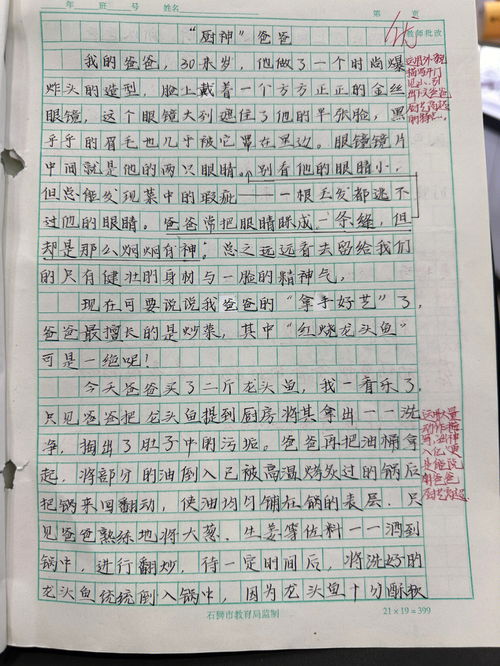 年 班 号 姓名 第 页
优
教师批改
“厨神”爸爸
我的爸爸，30来岁，他做了一个时尚爆
炸头的造型，脸上戴着一个方方正正的金丝
眼镜，这个眼镜大到遮住了他的半张脸，黑
乎乎的眉毛也几乎被它罩在里边。眼镜镜片
中间就是他的两只眼睛。别看他的眼睛小，
但总能发现菜中的瑕疵——一根毛发都逃不
过他的眼睛。爸爸常把眼睛眯成一条缝，但
却是那么炯炯有神。总之远远看去留给我们
的只有健壮的身材与一脸的精神气。
现在可要说说我爸爸的“拿手好艺”了，
爸爸最擅长的是炒菜，其中“红烧龙头鱼”
可是一绝呢！
今天爸爸买了二斤龙头鱼，我一看乐了，
只见爸爸把龙头鱼提到厨房将其拿出一一洗
净，掏出了肚子中的污垢。爸爸再把油桶拿
起，将部分的油倒入已被高温烤炙过的锅后
把锅来回翻动，使油均匀铺在锅的表层，只
见爸爸熟练地将大葱、生姜等佐料一一洒到
锅中，进行翻炒，待一定时间后，将洗好的
龙头鱼统统倒入锅中，因为龙头鱼十分酥软
运用大量
动作描
石狮市教育局监制
21×19=399